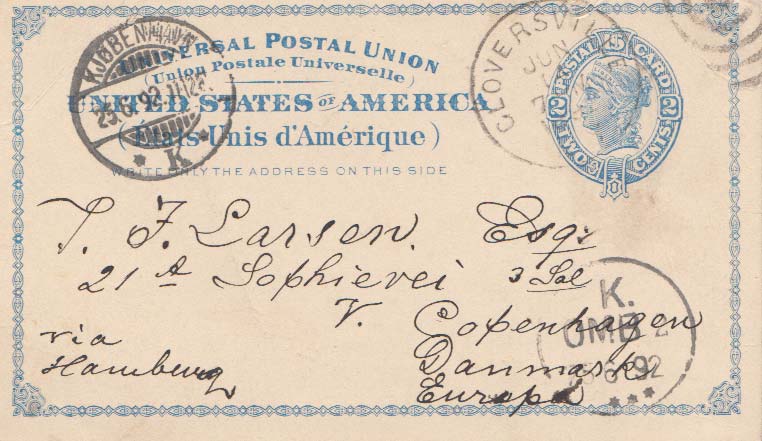 UNIVERSAL POSTAL UNION
(Union Postale Universelle)
UNITED STATES OF AMERICA
(États-Unis d'Amérique)
WRITE ONLY THE ADDRESS ON THIS SIDE
KJØBENHAVN
25.6.92
K
CLOVERSVIL
JUN
POSTAL CARD
2 2
TWO CENTS
T. F. Larsen. Esq:
21 A Sophievei 3 Sal
V. Copenhagen
via Danmark
Hamburg Europa
K.
OMB 2
25 6 92